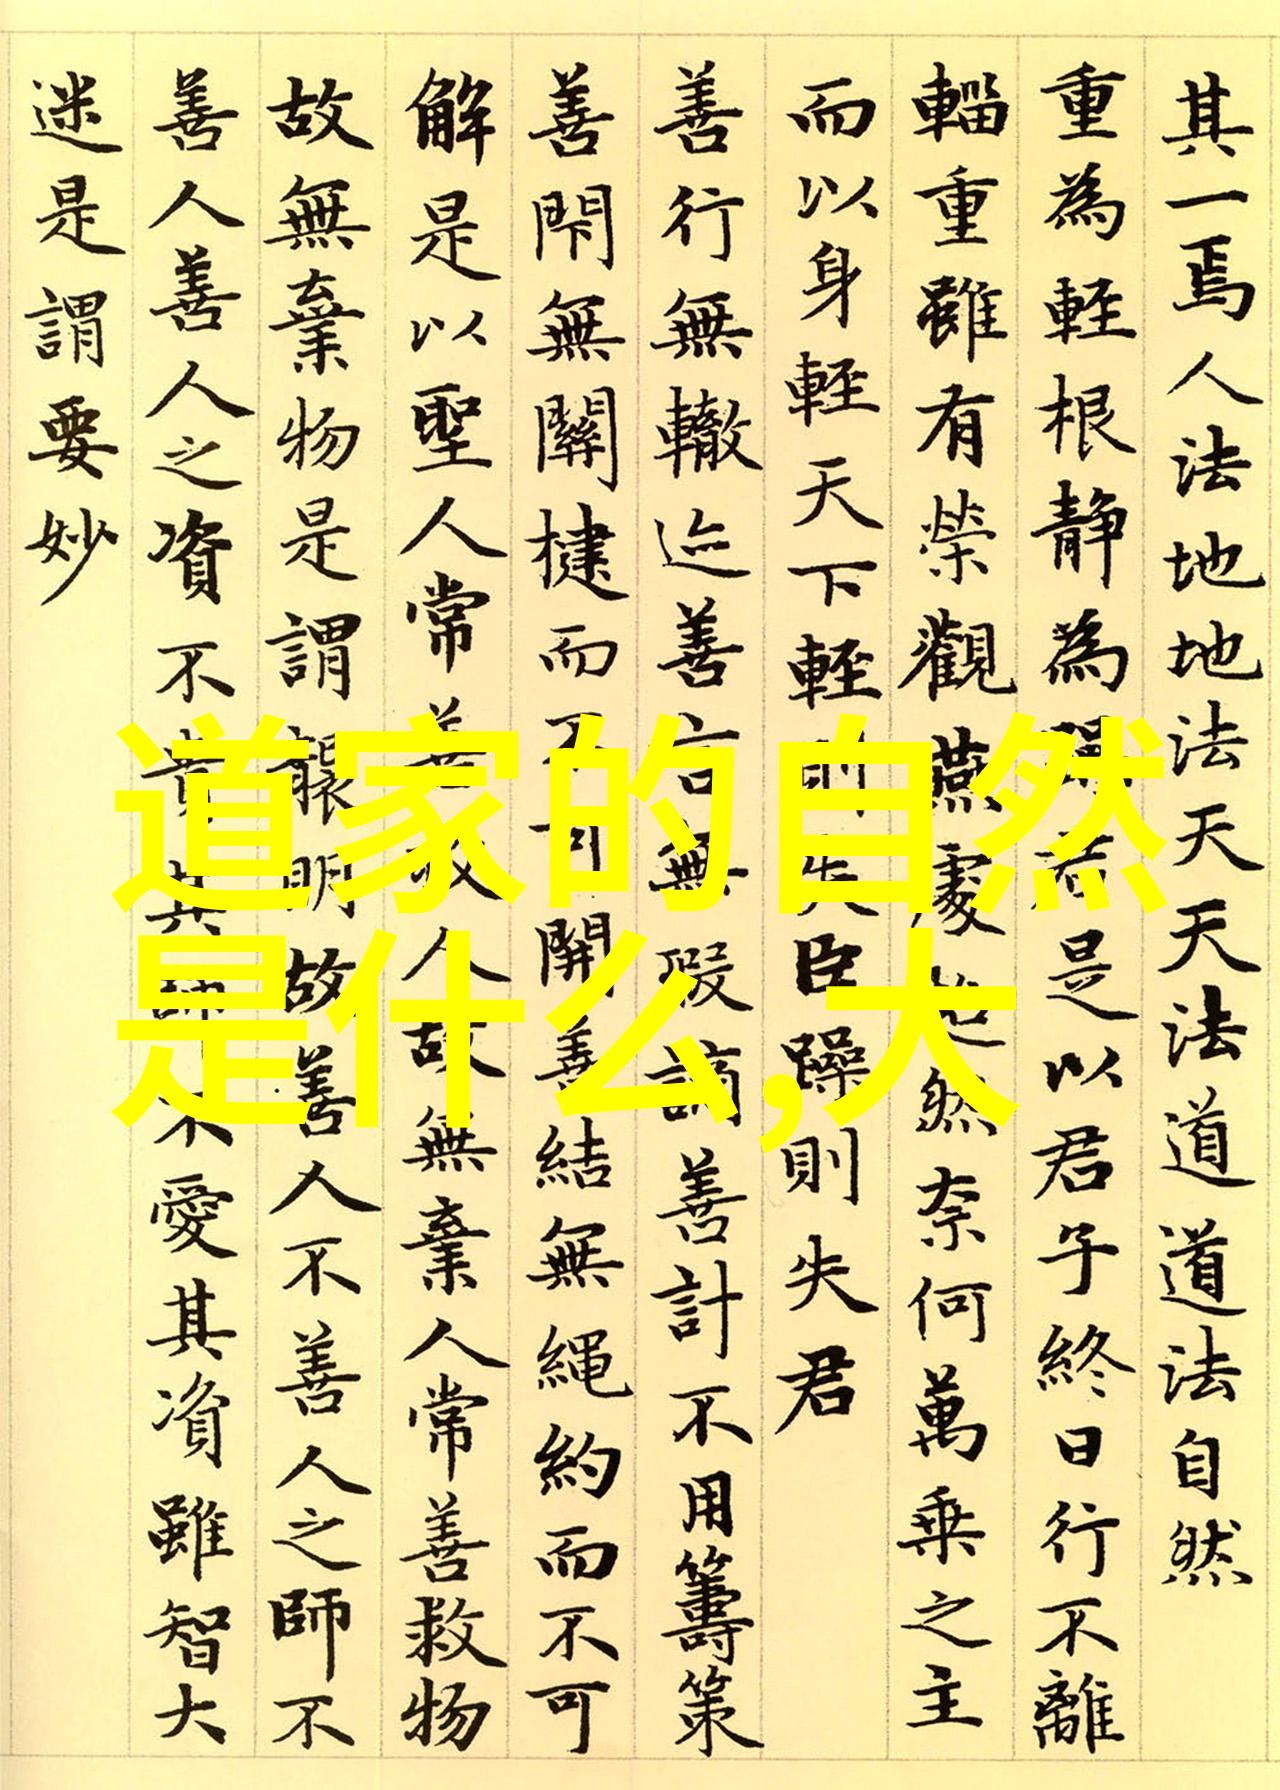 其一焉人法地地法天天法道道法自然
重為輕根静為躁君是以君子終日行不離
輜重雖有榮觀燕處超然奈何萬乘之主
而以身輕天下輕則失臣躁則失君
善行無轍迹善言無瑕謫善計不用籌策
善閇無關楗而不可開善結無繩約而不可
解是以聖人常善救人故無棄人常善救物
故無棄物是謂襲明故善人不善人之師不
善人善人之資不貴其師不愛其資雖智大
迷是謂要妙
道家的自然
是什么,大